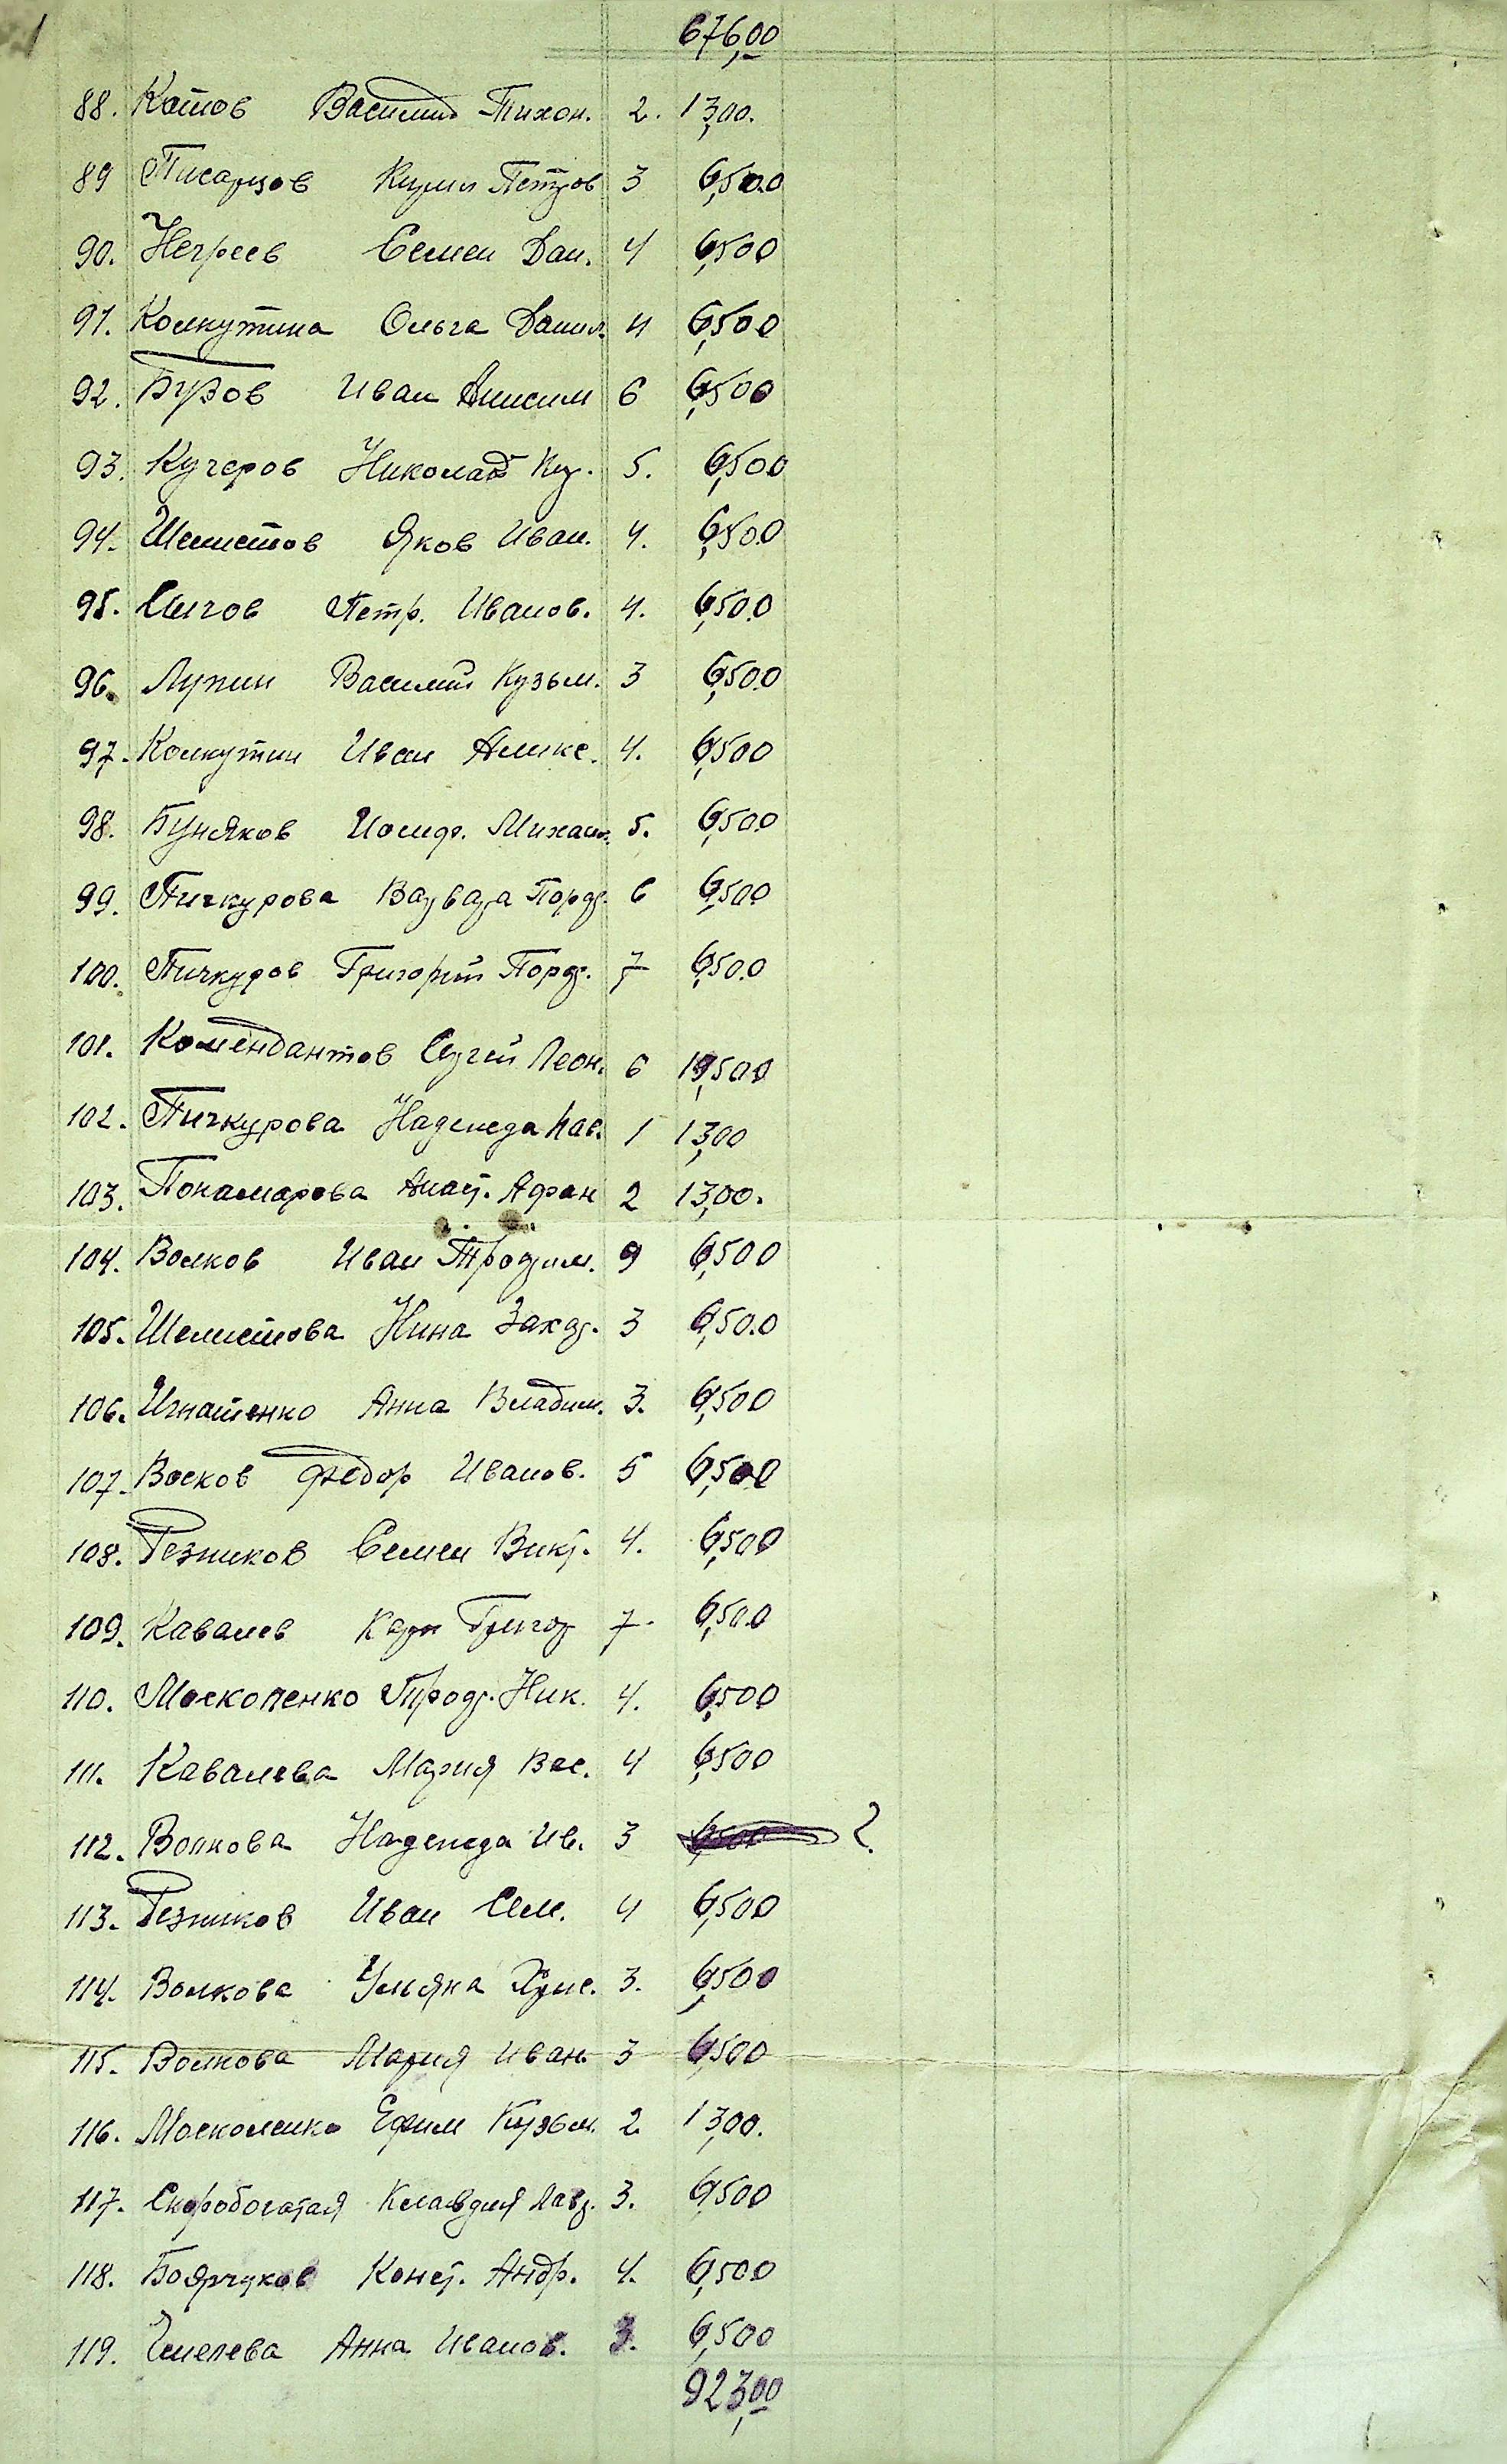 676,00
88. Котов Василий Тихон. 2. 13,00.
89 Писарцов Кирил Петров 3 6,500
90. Негреев Семен Дан. 4 6,500
91. Колкутина Ольга Данил. 4 6,500
92. Буров Иван Анисим 6 6,500
93. Кучеров Николай Куз. 5. 6,500
94. Шелистов Яков Иван. 4. 6,500
95. Сычов Петр. Иванов. 4. 6,500
96. Лупин Василий Кузьм. 3 6,500
97. Колкутин Иван Алекс. 4. 6,500
98. Буняков Иосиф. Михаил. 5. 6,500
99. Пичкурова Варвара Порф. 6 6,500
100. Пичкуров Григорий Порф. 7 6,500
101. Комендантов Сергей Леон. 6 19,500
102. Пичкурова Надежда Пав. 1 13,00
103. Понамарова Анаст. Афан 2 13,00.
104. Волков Иван Трофим. 9 6,500
105. Шелистова Нина Захар. 3 6,500
106. Игнатенко Анна Владим. 3. 6,500
107. Восков Федор Иванов. 5 6,500
108. Резников Семен Викт. 4. 6,500
109. Кавалев Карп Григор 7. 6,500
110. Москопенко Проф. Ник. 4. 6,500
111. Кавалева Мария Вас. 4 6,500
112. Волкова Надежда Ив. 3 6,500 ?
113. Резников Иван Сем. 4 6,500
114. Волкова Ульяна Хрис. 3. 6,500
115. Волкова Мария Иван 3 6,500
116. Москоленко Ефим Кузьм. 2 13,00.
117. Скоробогатая Клавдия Лавр. 3. 6,500
118. Боярчуков Конст. Андр. 4. 6,500
119. Чмелева Анна Иванов. 3. 6,500
923,00